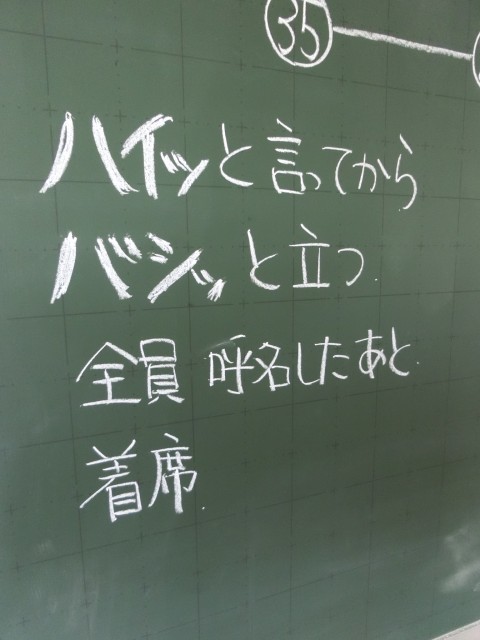 ㉟
ハイッと言ってから
バシッと立つ.
全員 呼名したあと.
着席.